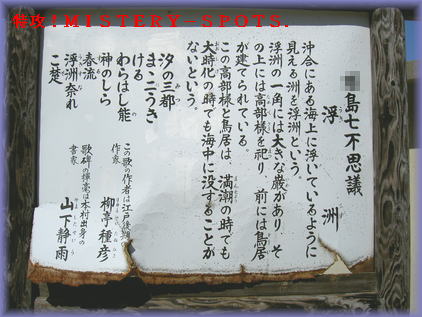 MISTERY-SPOTS.
島七不思議
浮洲
沖合にある海上に浮いているように
見える洲を浮洲という。
浮洲の一角には大きな巌があり そ
の上には高部様を祀り、前には鳥居
が建てられている。
この高部様と鳥居は、満潮の時でも
大時化の時でも海中に没することが
ないという。
汐の三都
まニ二うき
ける
わらはし能
神のしら
春流
浮洲奈れ
こ楚
この歌の作者は江戸後期
作家 柳亭種彦
歌碑の揮毫は本村出身の
書家 山下静雨